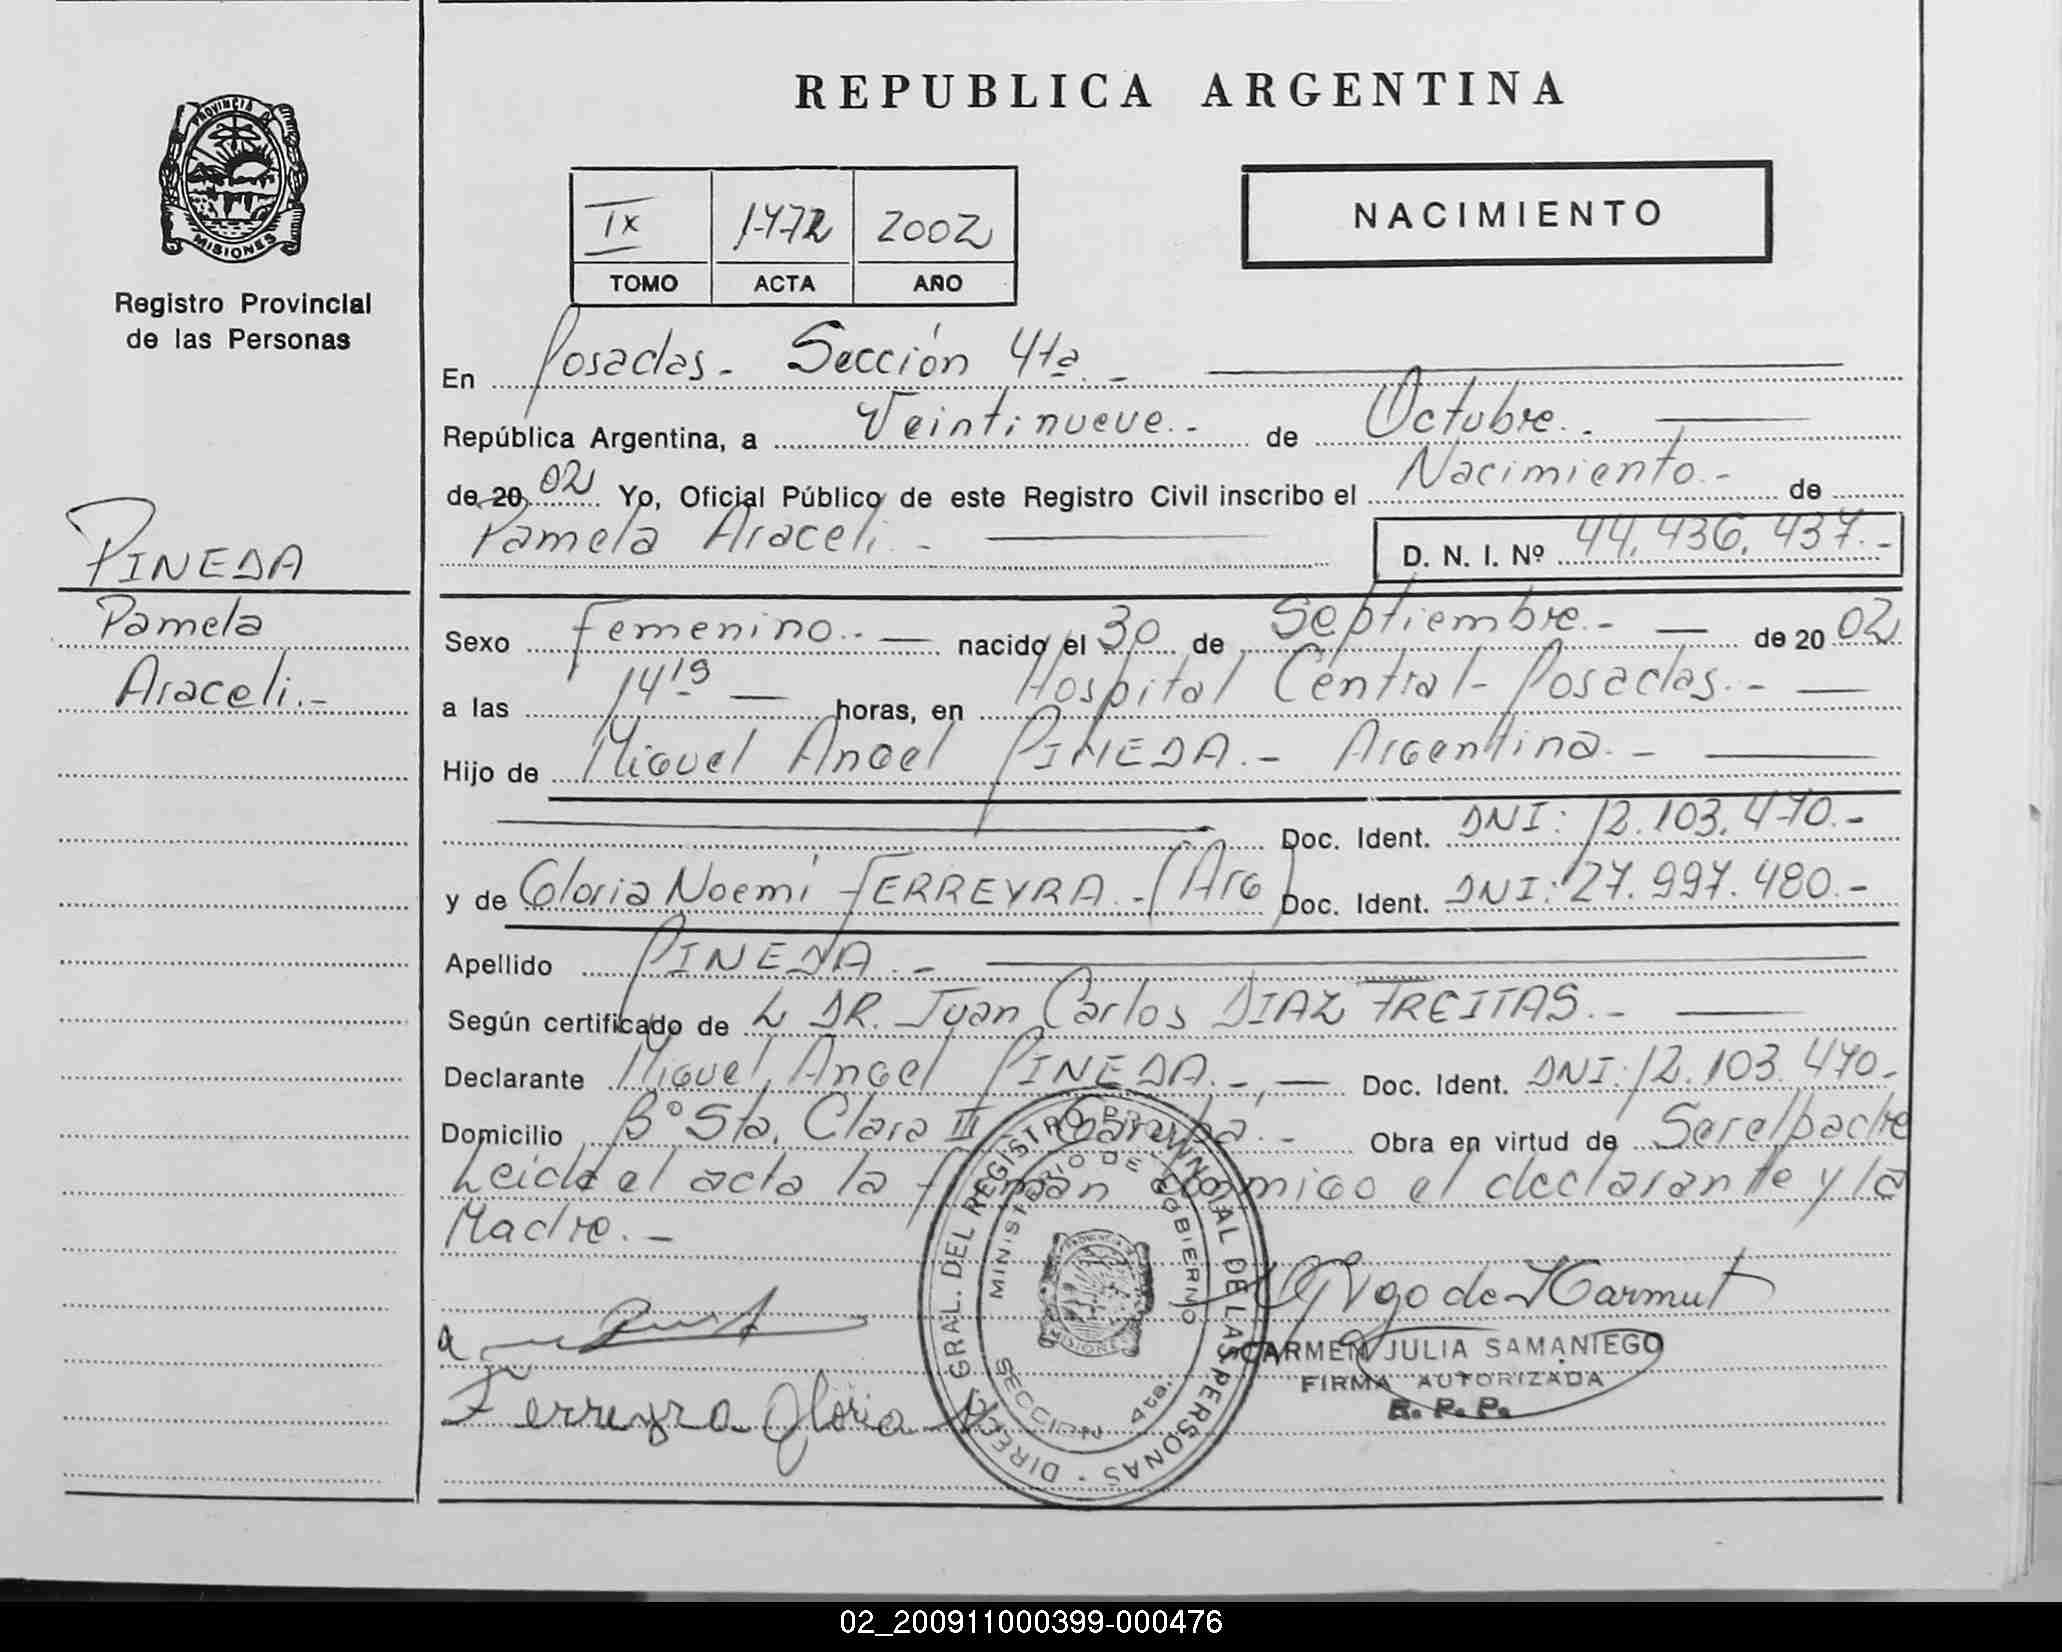 REPUBLICA ARGENTINA
PROVINCIA DE
MISIONES
Registro Provincial
de las Personas
IX 1772 2002
TOMO ACTA AÑO
NACIMIENTO
En Posadas.- Sección 4ta.-
República Argentina, a Veintinueve.- de Octubre.-
de 20 02 Yo, Oficial Público de este Registro Civil inscribo el Nacimiento.- de
Pamela Araceli.- D. N. I. Nº 44.436.437.-
PINEDA
Pamela
Araceli.-
Sexo Femenino.- nacido el 30 de Septiembre.- de 20 02
a las 14 19 horas, en Hospital Central- Posadas.-
Hijo de Miguel Angel PINEDA.- Argentina.-
Doc. Ident. DNI: 12.103.470.-
y de Gloria Noemí FERREYRA.- (Arg) Doc. Ident. DNI: 27.997.480.-
Apellido PINEDA.-
Según certificado de DR. Juan Carlos DIAZ FREITAS.-
Declarante Miguel Angel PINEDA.- Doc. Ident. DNI: 12.103.470.-
Domicilio Bº Sta. Clara II Garupá.- Obra en virtud de Ser el padre
Leida el acta la firman conmigo el declarante y la
Madre.-
DIREC. GRAL. DEL REGISTRO PROVINCIAL DE LAS PERSONAS
MINISTERIO DE GOBIERNO
SECCION 4ta.
CARMEN JULIA SAMANIEGO
FIRMA AUTORIZADA
R. P. P.
Ferreyra Gloria N
02_200911000399-000476